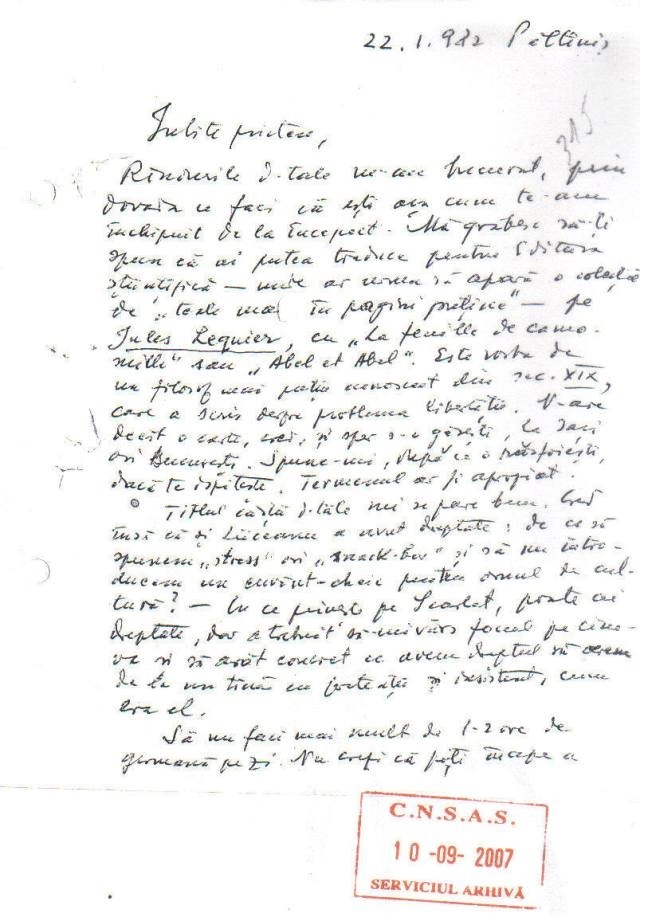 22.1.982 Păltiniș
315
Iubite prieten,
Rîndurile d-tale m-au bucurat, prin
dovada ce faci că ești așa cum te-am
închipuit de la început. Mă grăbesc să-ți
spun că ai putea traduce pentru Editura
științifică — unde ar urma să apară o colecție
de „texte mari în pagini puține" — pe
Jules Lequier, cu „La feuille de camo-
mille" sau „Abel et Abel". Este vorba de
un filosof mai puțin cunoscut din sec. XIX,
care a scris despre problema libertății. N-are
decît o carte, și sper s-o găsești, la Iași
ori București. Spune-mi, după ce o răsfoiești,
dacă te ispitește. Termenul ar fi apropiat.
Titlul cărții d-tale mi se pare bun. Cred
însă că și Liiceanu a avut dreptate: de ce să
spunem „stress" ori „snack-bar" și să nu intro-
ducem un cuvînt-cheie pentru omul de cul-
tură? — În ce privește pe Scarlat, poate ai
dreptate, dar a trebuit să-mi vărs focul pe cine-
va și să arăt concret ce avem dreptul să cerem
de la un tînăr cu pretenții și insistent, cum
era el.
Să nu faci mai mult de 1-2 ore de
germană pe zi. Nu crezi că poți începe a
C.N.S.A.S.
10 -09- 2007
SERVICIUL ARHIVĂ